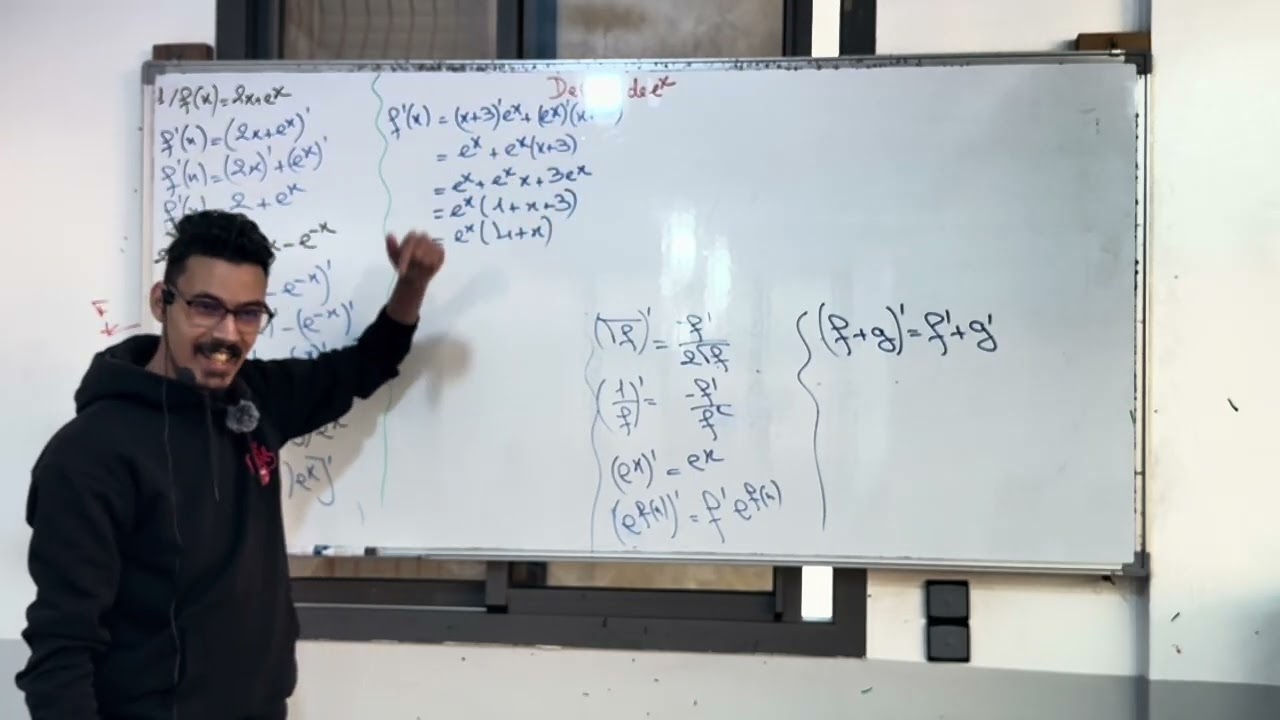 De de eˣ
1/ f(x) = 2x+eˣ
f'(x) = (2x+eˣ)'
f'(x) = (2x)' + (eˣ)'
f'(x) 2 + eˣ
x - e⁻ˣ
- e⁻ˣ)'
1 - (e⁻ˣ)'
) eˣ
) eˣ]'
f'(x) = (x+3)'eˣ + (eˣ)'(x
= eˣ + eˣ(x+3)
= eˣ + eˣ x + 3eˣ
= eˣ (1 + x + 3)
= eˣ (4+x)
(√f)' = f'/2√f
(1/f)' = -f'/f²
(eˣ)' = eˣ
(e^f(x))' = f' e^f(x)
(f+g)' = f'+g'